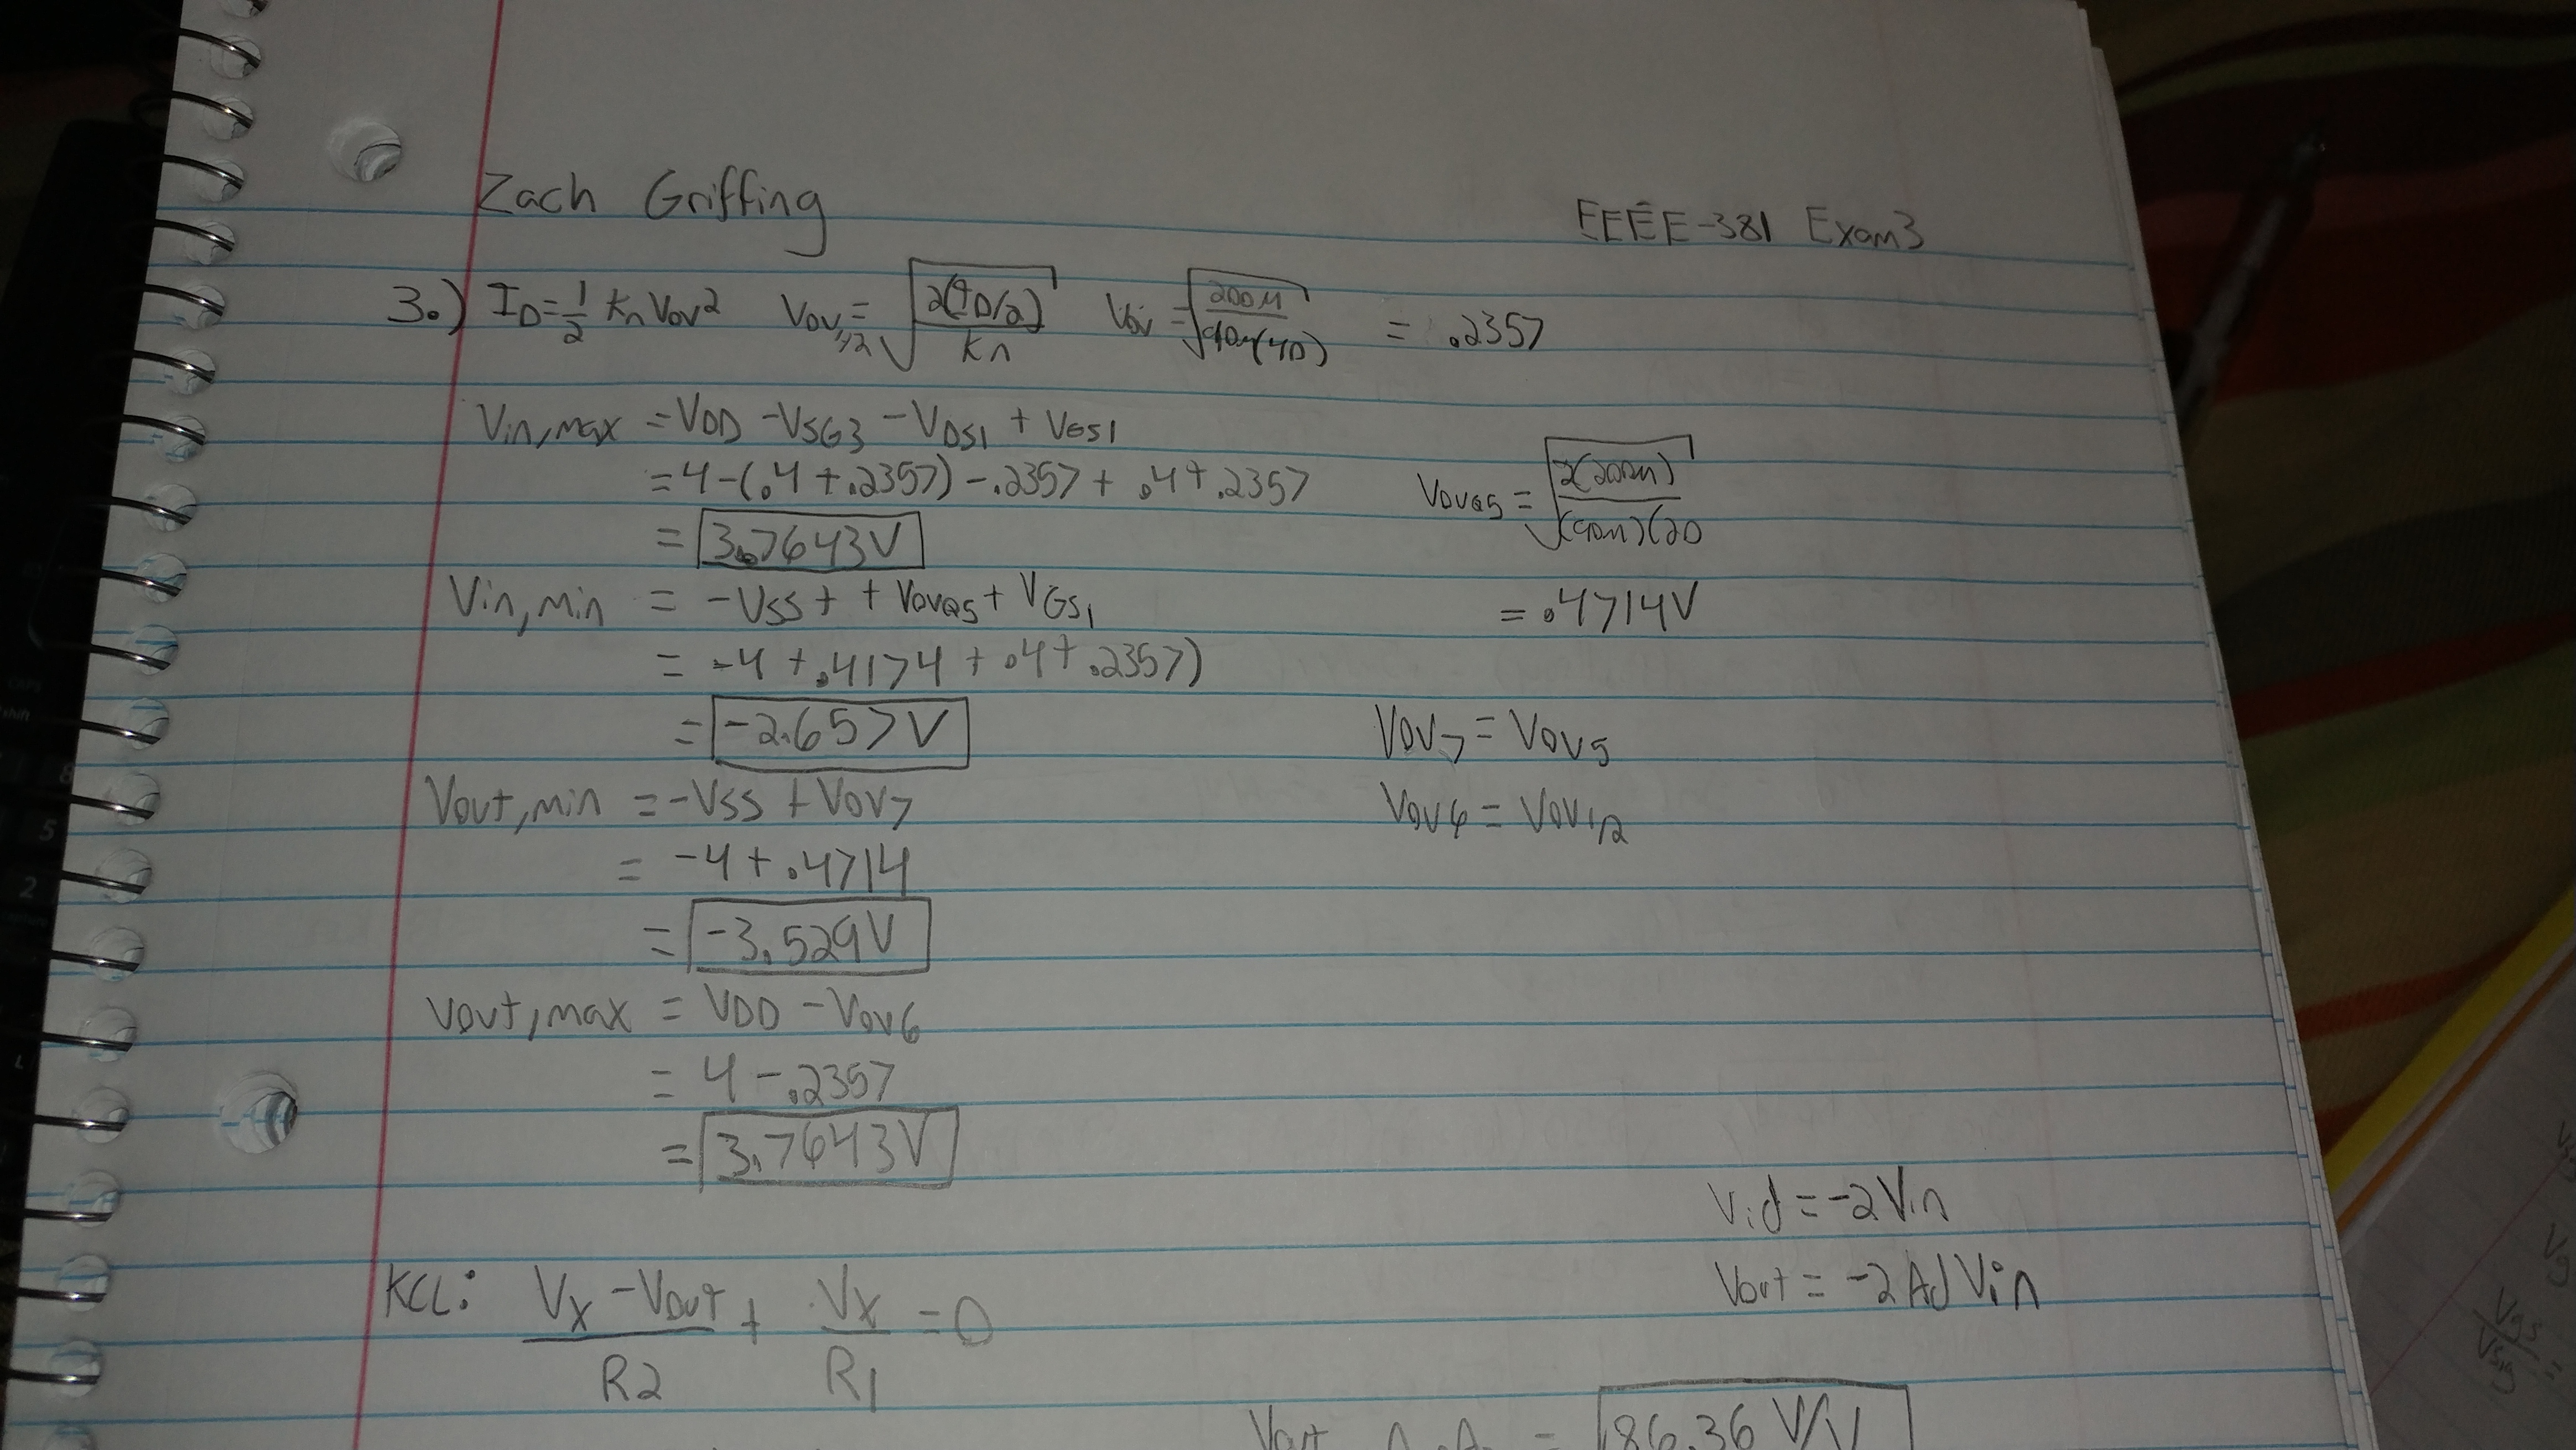 Zach Griffing
EEEE-381 Exam3
3.) ID = 1/2 kn Vov² Vov1,2 = √(2(ID/2)/kn) Vov = √(200μ/90μ(40)) = .2357
Vin,max = VDD - VSG3 - VDS1 + VGS1
= 4 - (.4 + .2357) - .2357 + .4 + .2357
= 3.7643V
VovQ5 = √(2(200μ)/(90μ)(20)
= .4714V
Vin,min = -VSS + + VovQ5 + VGS1
= -4 + .4174 + .4 + .2357)
= -2.657V
Vov7 = Vov5
Vov6 = Vov1,2
Vout,min = -VSS + Vov7
= -4 + .4714
= -3.529V
Vout,max = VDD - Vov6
= 4 - .2357
= 3.7643V
Vid = -2Vin
Vout = -2AdVin
KCL: (Vx - Vout)/R2 + Vx/R1 = 0
Vout = 86.36 V/V
Vgs/Vsig =